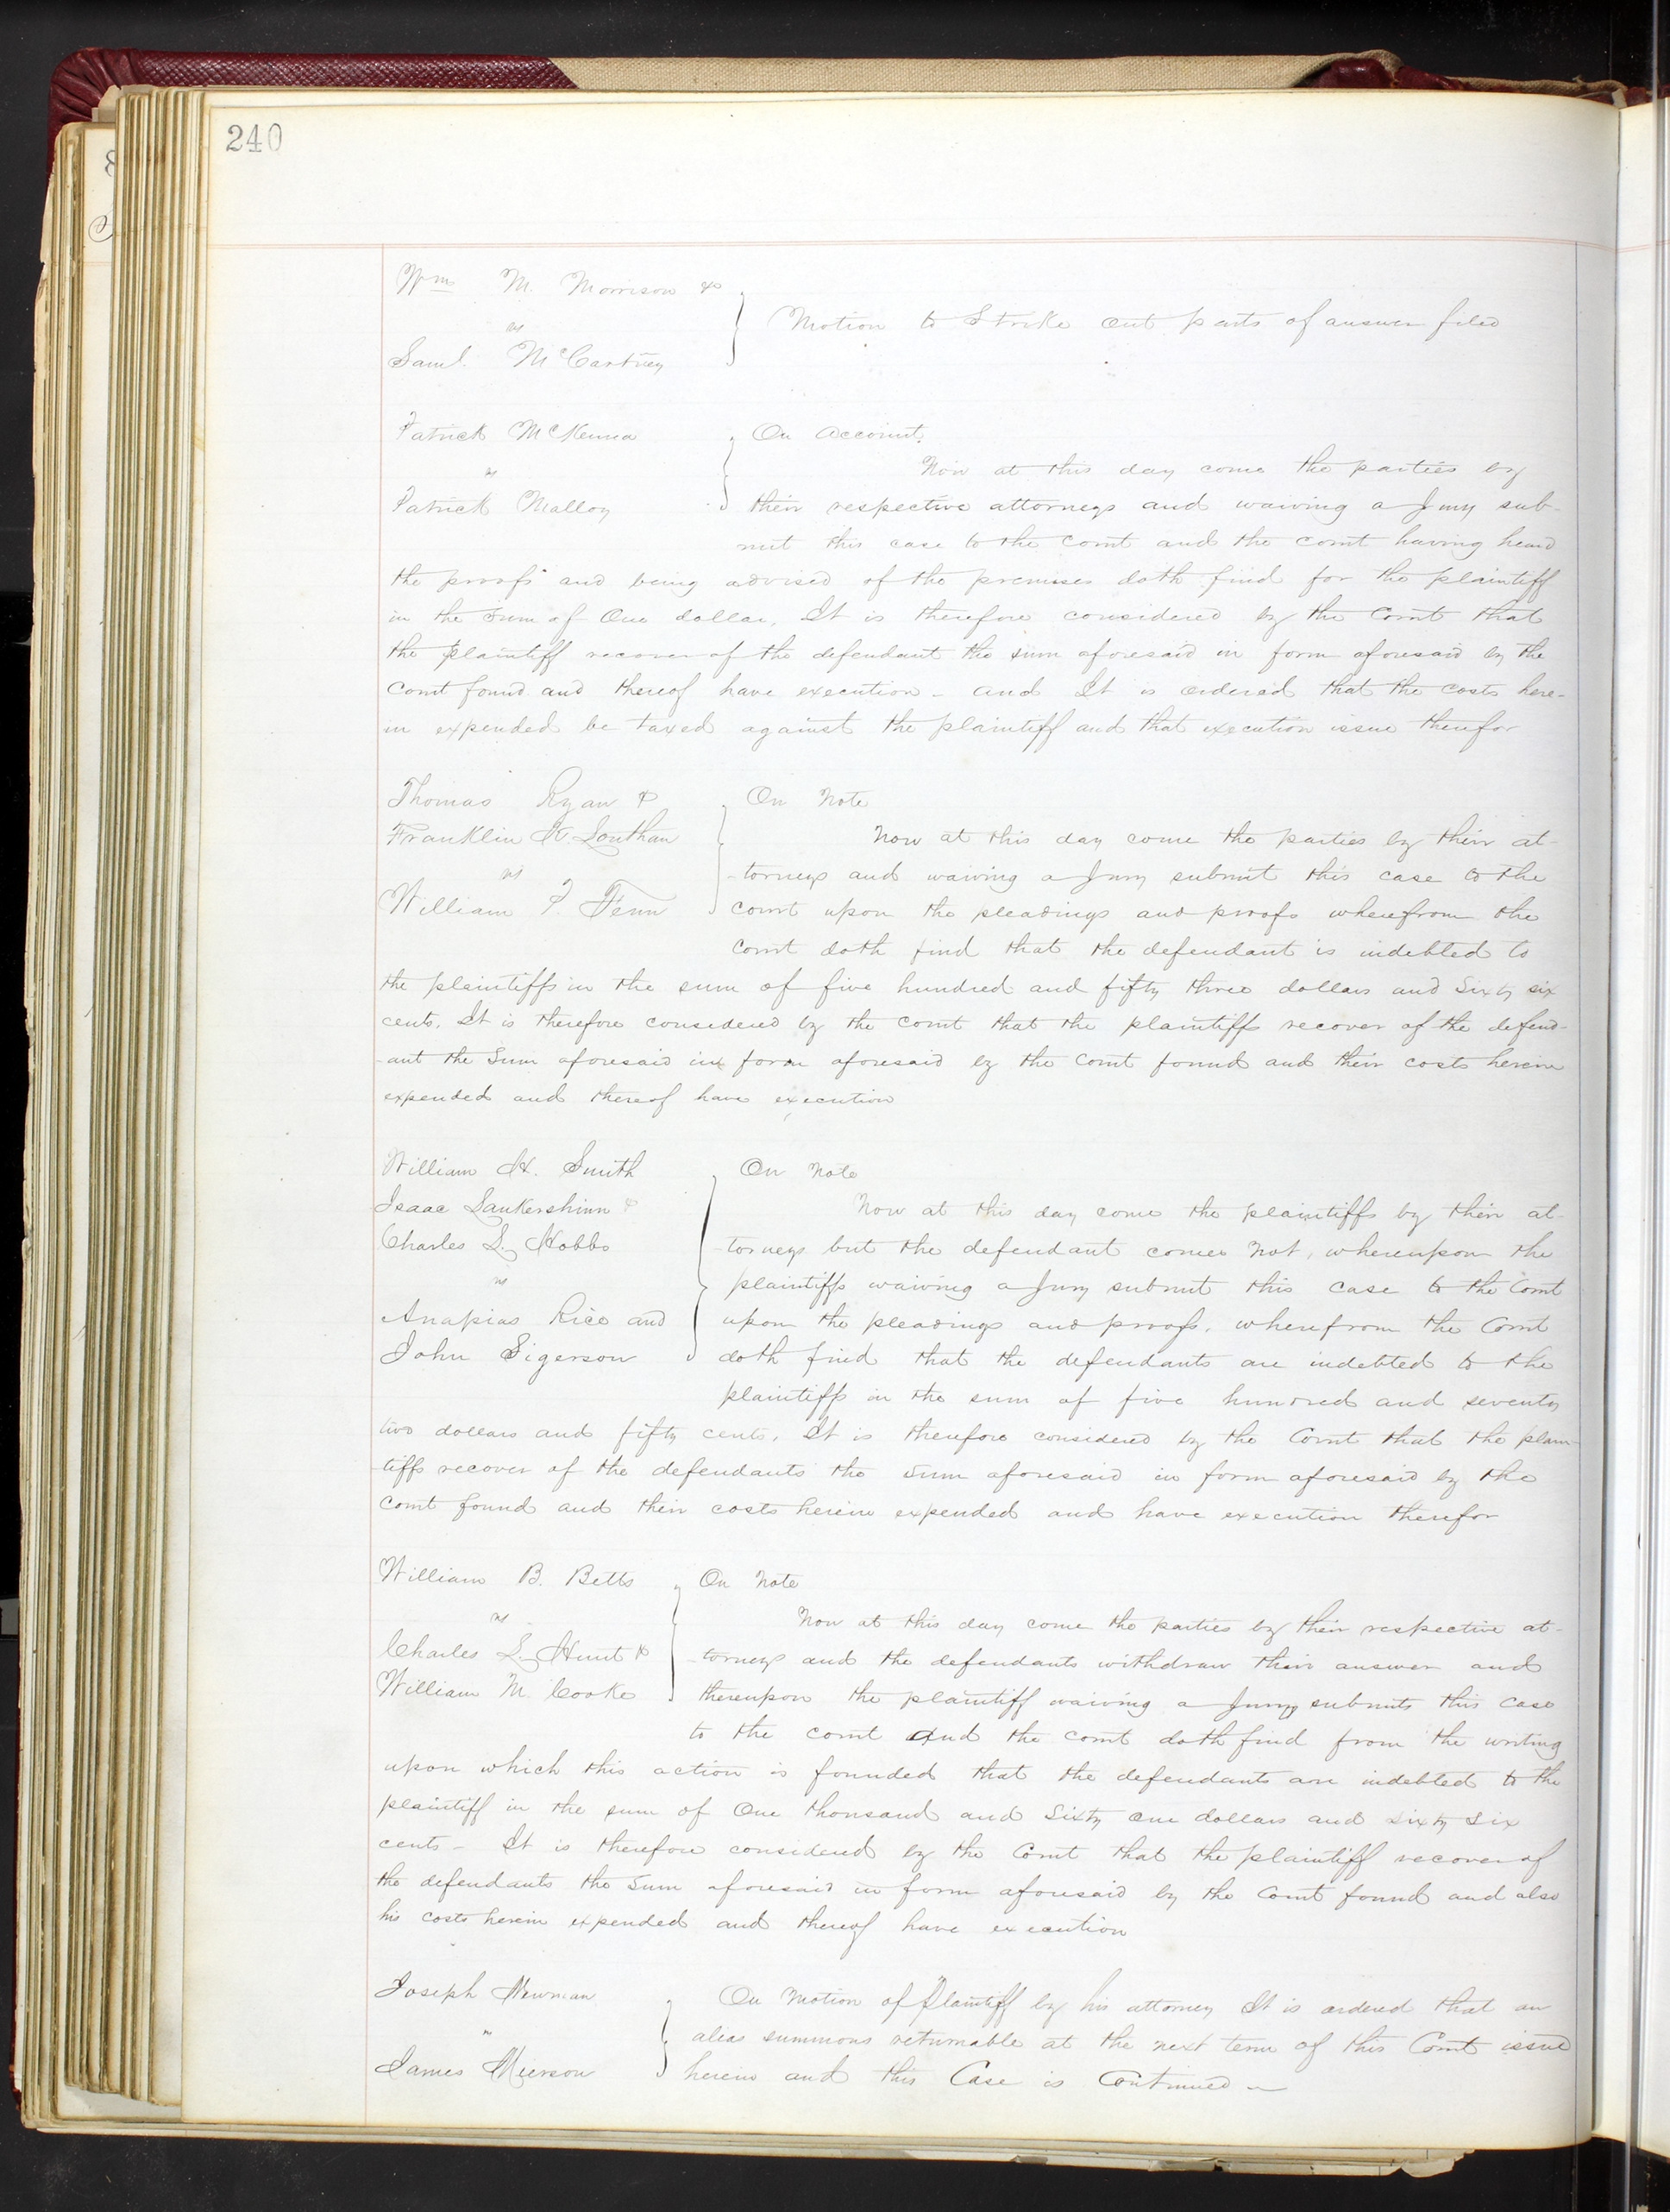 240
Wm M. Morrison &
vs
Saml. McCartney
Motion to Strike out parts of answer filed
Patrick McKenna
vs
Patrick Malloy
On Account.
Now at this day come the parties by
their respective attorneys and waiving a Jury sub-
mit this case to the Court and the court having heard
the proofs and being advised of the premises doth find for the plaintiff
in the sum of One dollar. It is therefore considered by the Court that
the plaintiff recover of the defendant the sum aforesaid in form aforesaid by the
Court found and thereof have execution - and It is ordered that the costs here-
in expended be taxed against the plaintiff and that execution issue therefor
Thomas Ryan &
Franklin A. Louthan
vs
William F. Fenn
On Note
Now at this day come the parties by their at-
-torneys and waiving a Jury submit this case to the
court upon the pleadings and proofs wherefrom the
Court doth find that the defendant is indebted to
the plaintiffs in the sum of five hundred and fifty three dollars and Sixty six
cents. It is therefore considered by the Court that the plaintiffs recover of the defend-
-ant the Sum aforesaid in form aforesaid by the Court found and their costs herein
expended and thereof have execution
William H. Smith
Isaac Lankershim &
Charles L. Hobbs
vs
Anapias Rice and
John Sigerson
On Note
Now at this day come the plaintiffs by their at-
-torneys but the defendant comes not, whereupon the
plaintiffs waiving a Jury submit this case to the Court
upon the pleadings and proofs, wherefrom the Court
doth find that the defendants are indebted to the
plaintiffs in the sum of five hundred and seventy
two dollars and fifty cents. It is therefore considered by the Court that the plain-
-tiffs recover of the defendants the Sum aforesaid in form aforesaid by the
Court found and their costs herein expended and have execution therefor
William B. Betts
vs
Charles L. Hunt &
William M. Cooke
On Note
Now at this day come the parties by their respective at-
-torneys and the defendants withdraw their answer and
thereupon the plaintiff waiving a Jury submits this case
to the court and the court doth find from the writing
upon which this action is founded that the defendants are indebted to the
plaintiff in the sum of One thousand and Sixty One dollars and sixty six
cents - It is therefore considered by the Court that the plaintiff recover of
the defendants the Sum aforesaid in form aforesaid by the Court found and also
his costs herein expended and thereof have execution
Joseph Newman
vs
James Mierson
On Motion of Plaintiff by his attorney It is ordered that an
alias summons returnable at the next term of this Court issue
herein and this Case is Continued -